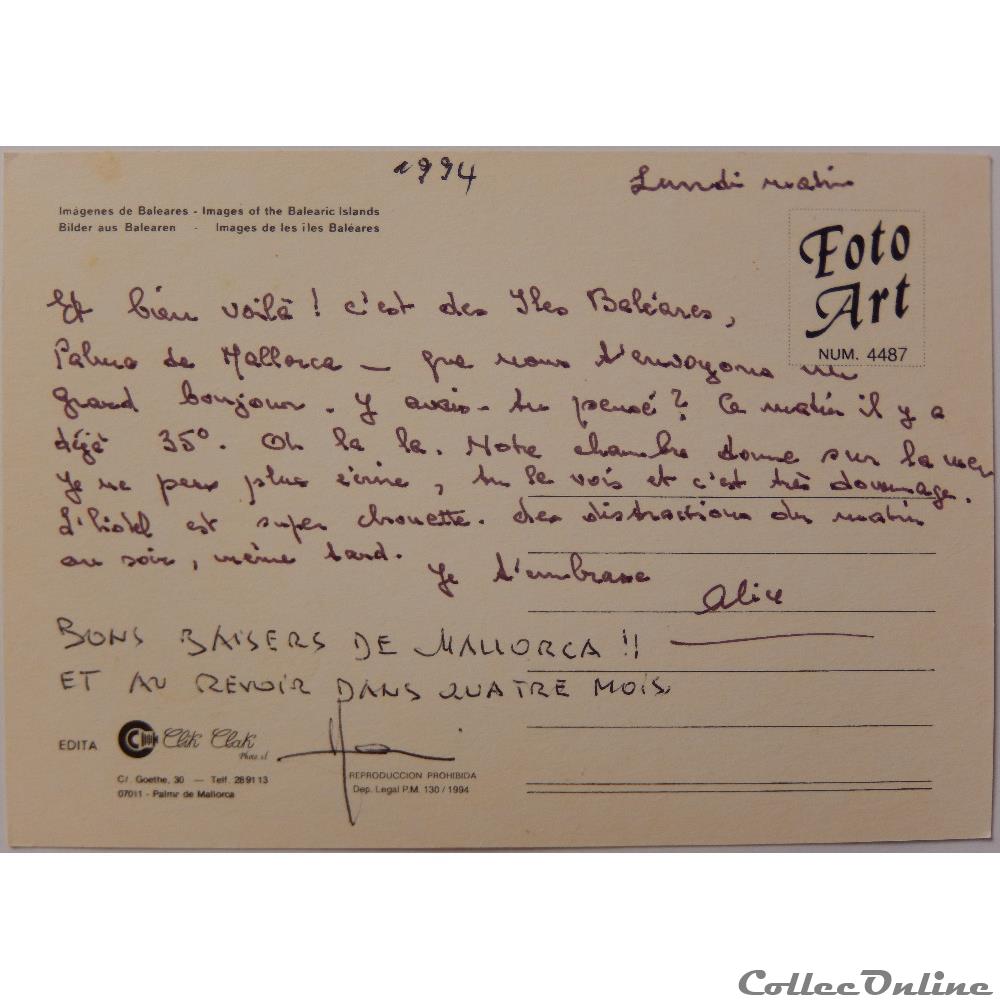 1994
Lundi matin
Imágenes de Baleares - Images of the Balearic Islands
Bilder aus Balearen - Images de les îles Baléares
Foto
Art
NUM. 4487
Et bien voilà ! c'est des Iles Baléares,
Palma de Mallorca — que nous t'envoyons un
grand bonjour. Y avais-tu pensé ? Ce matin il y a
déjà 35°. Oh la la. Notre chambre donne sur la mer
Je ne peux plus écrire, tu le vois et c'est très dommage.
L'hôtel est super chouette. des distractions du matin
au soir, même tard. Je t'embrasse
Alice
BONS BAISERS DE MALLORCA !!
ET AU REVOIR DANS QUATRE MOIS.
EDITA Clik Clak
Photo s.l.
C/. Goethe, 30 — Telf. 28 91 13
07011 - Palma de Mallorca
REPRODUCCION PROHIBIDA
Dep. Legal P.M. 130 / 1994
CollecOnline